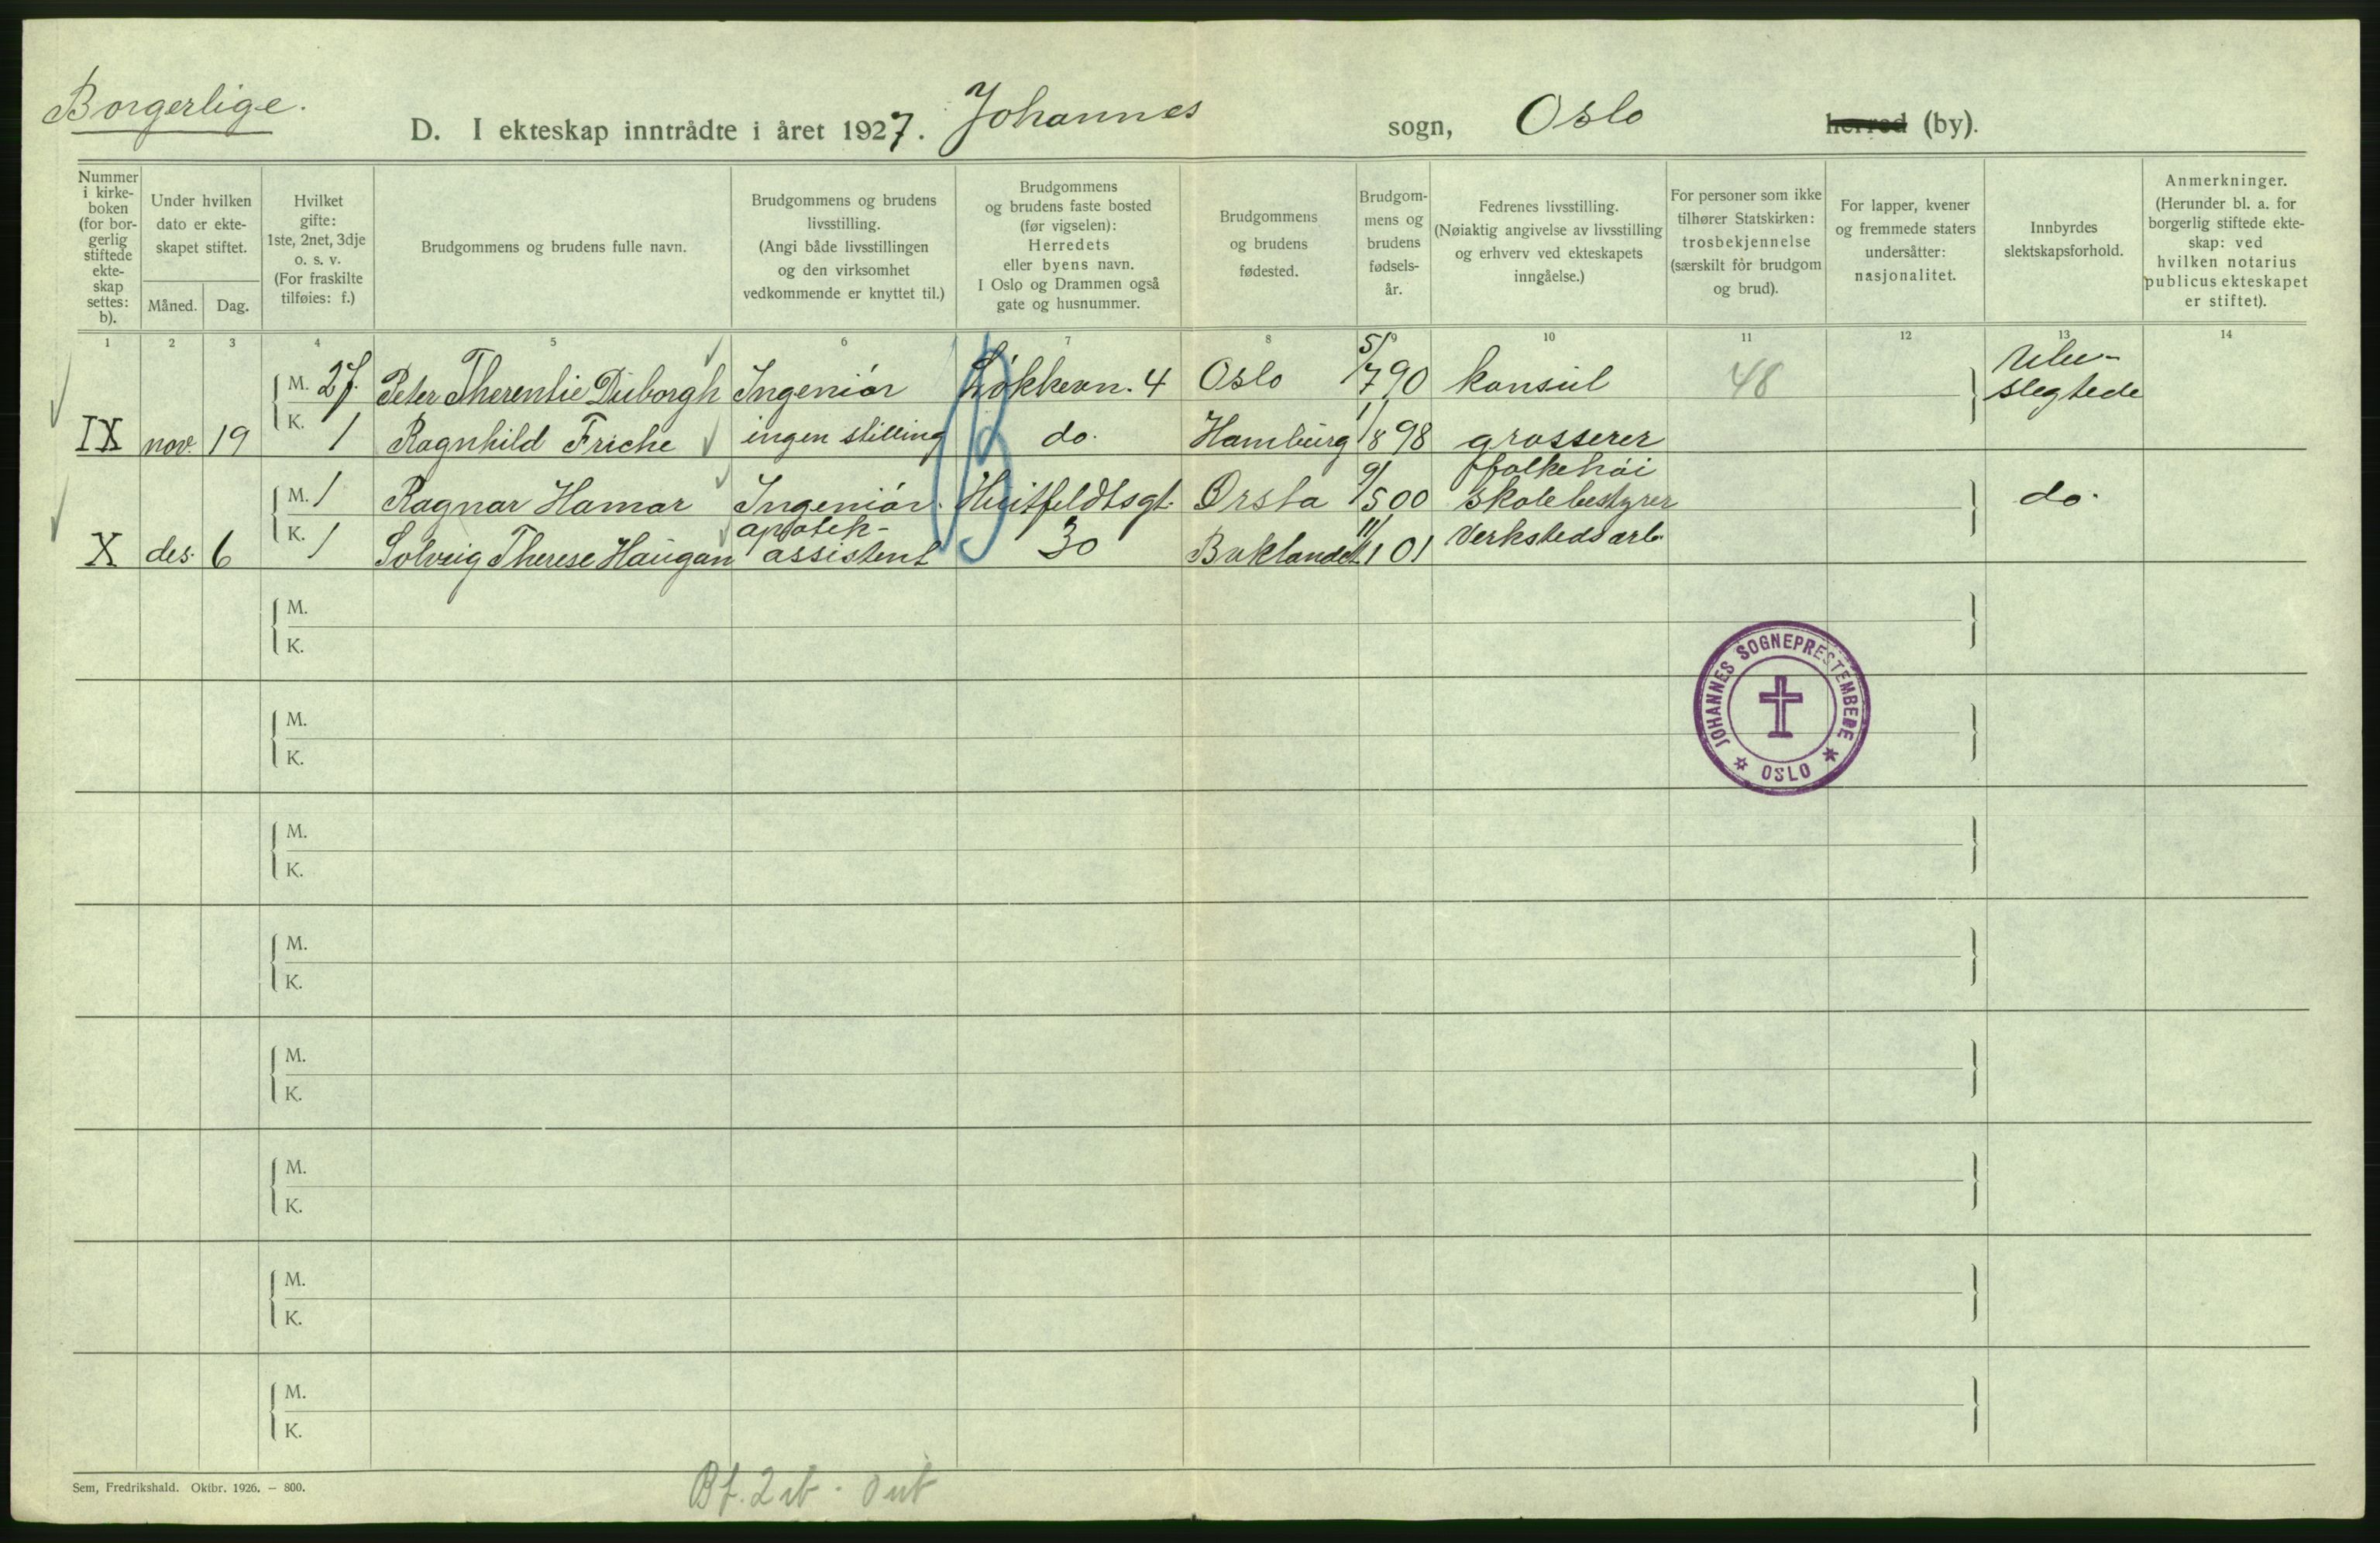 Borgerlige.
D. I ekteskap inntrådte i året 1927. Johannes sogn, Oslo herred (by).
Nummer i kirke-boken (for bor-gerlig stiftede ekte-skap settes: b).
Under hvilken dato er ekte-skapet stiftet.
Måned.
Dag.
Hvilket gifte: 1ste, 2net, 3dje o. s. v. (For fraskilte tilføies: f.)
Brudgommens og brudens fulle navn.
Brudgommens og brudens livsstilling. (Angi både livsstillingen og den virksomhet vedkommende er knyttet til.)
Brudgommens og brudens faste bosted (før vigselen): Herredets eller byens navn. I Oslo og Drammen også gate og husnummer.
Brudgommens og brudens fødested.
Brudgom-mens og brudens fødsels-år.
Fedrenes livsstilling. (Nøiaktig angivelse av livsstilling og erhverv ved ekteskapets inngåelse.)
For personer som ikke tilhører Statskirken: trosbekjennelse (særskilt for brudgom og brud).
For lapper, kvener og fremmede staters undersåtter: nasjonalitet.
Innbyrdes slektskapsforhold.
Anmerkninger. (Herunder bl. a. for borgerlig stiftede ekte-skap: ved hvilken notarius publicus ekteskapet er stiftet).
1 2 3 4 5 6 7 8 9 10 11 12 13 14
M. 2f. Peter Therentie Duborgh Ingeniór Løkkevn. 4 Oslo 5/7 90 konsul 48 Ube-slegtede
IX nov. 19 K. 1 Ragnhild Friche ingen stilling do. Hamburg 1/8 98 grosserer
M. 1 Ragnar Hamar Ingeniór. Huitfeldtsgt. Ørsta 9/5 00 folkehói skolebestyrer do.
X des. 6 K. 1 Solveig Therese Haugan apotek-assistent 30 Baklandet 11/1 01 Verkstedsarb.
M.
K.
M.
K.
M.
K.
M.
K.
M.
K.
M.
K.
M.
K.
M.
K.
JOHANNES SOGNEPRESTEMBEDE
OSLO
Sem, Fredrikshald. Oktbr. 1926. — 800.
Bf. 2